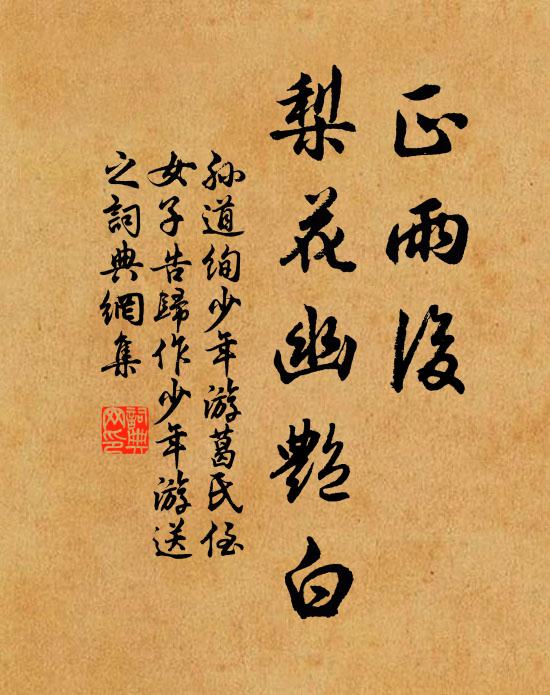 正雨後
梨花幽艷白
孙道绚少年游葛氏侄
女子告歸作少年游送
之詞典網集
詞典网印